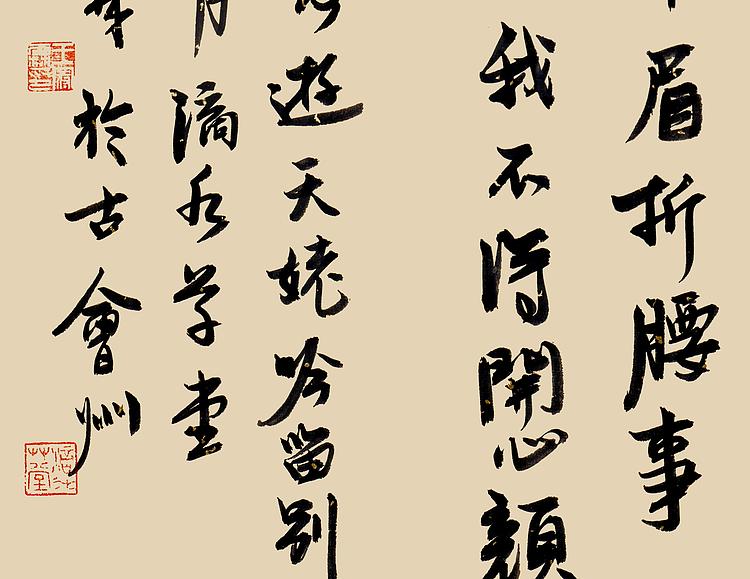 眉折腰事
我不得開心顏
遊天姥吟留別
月滴水草堂
於古會州